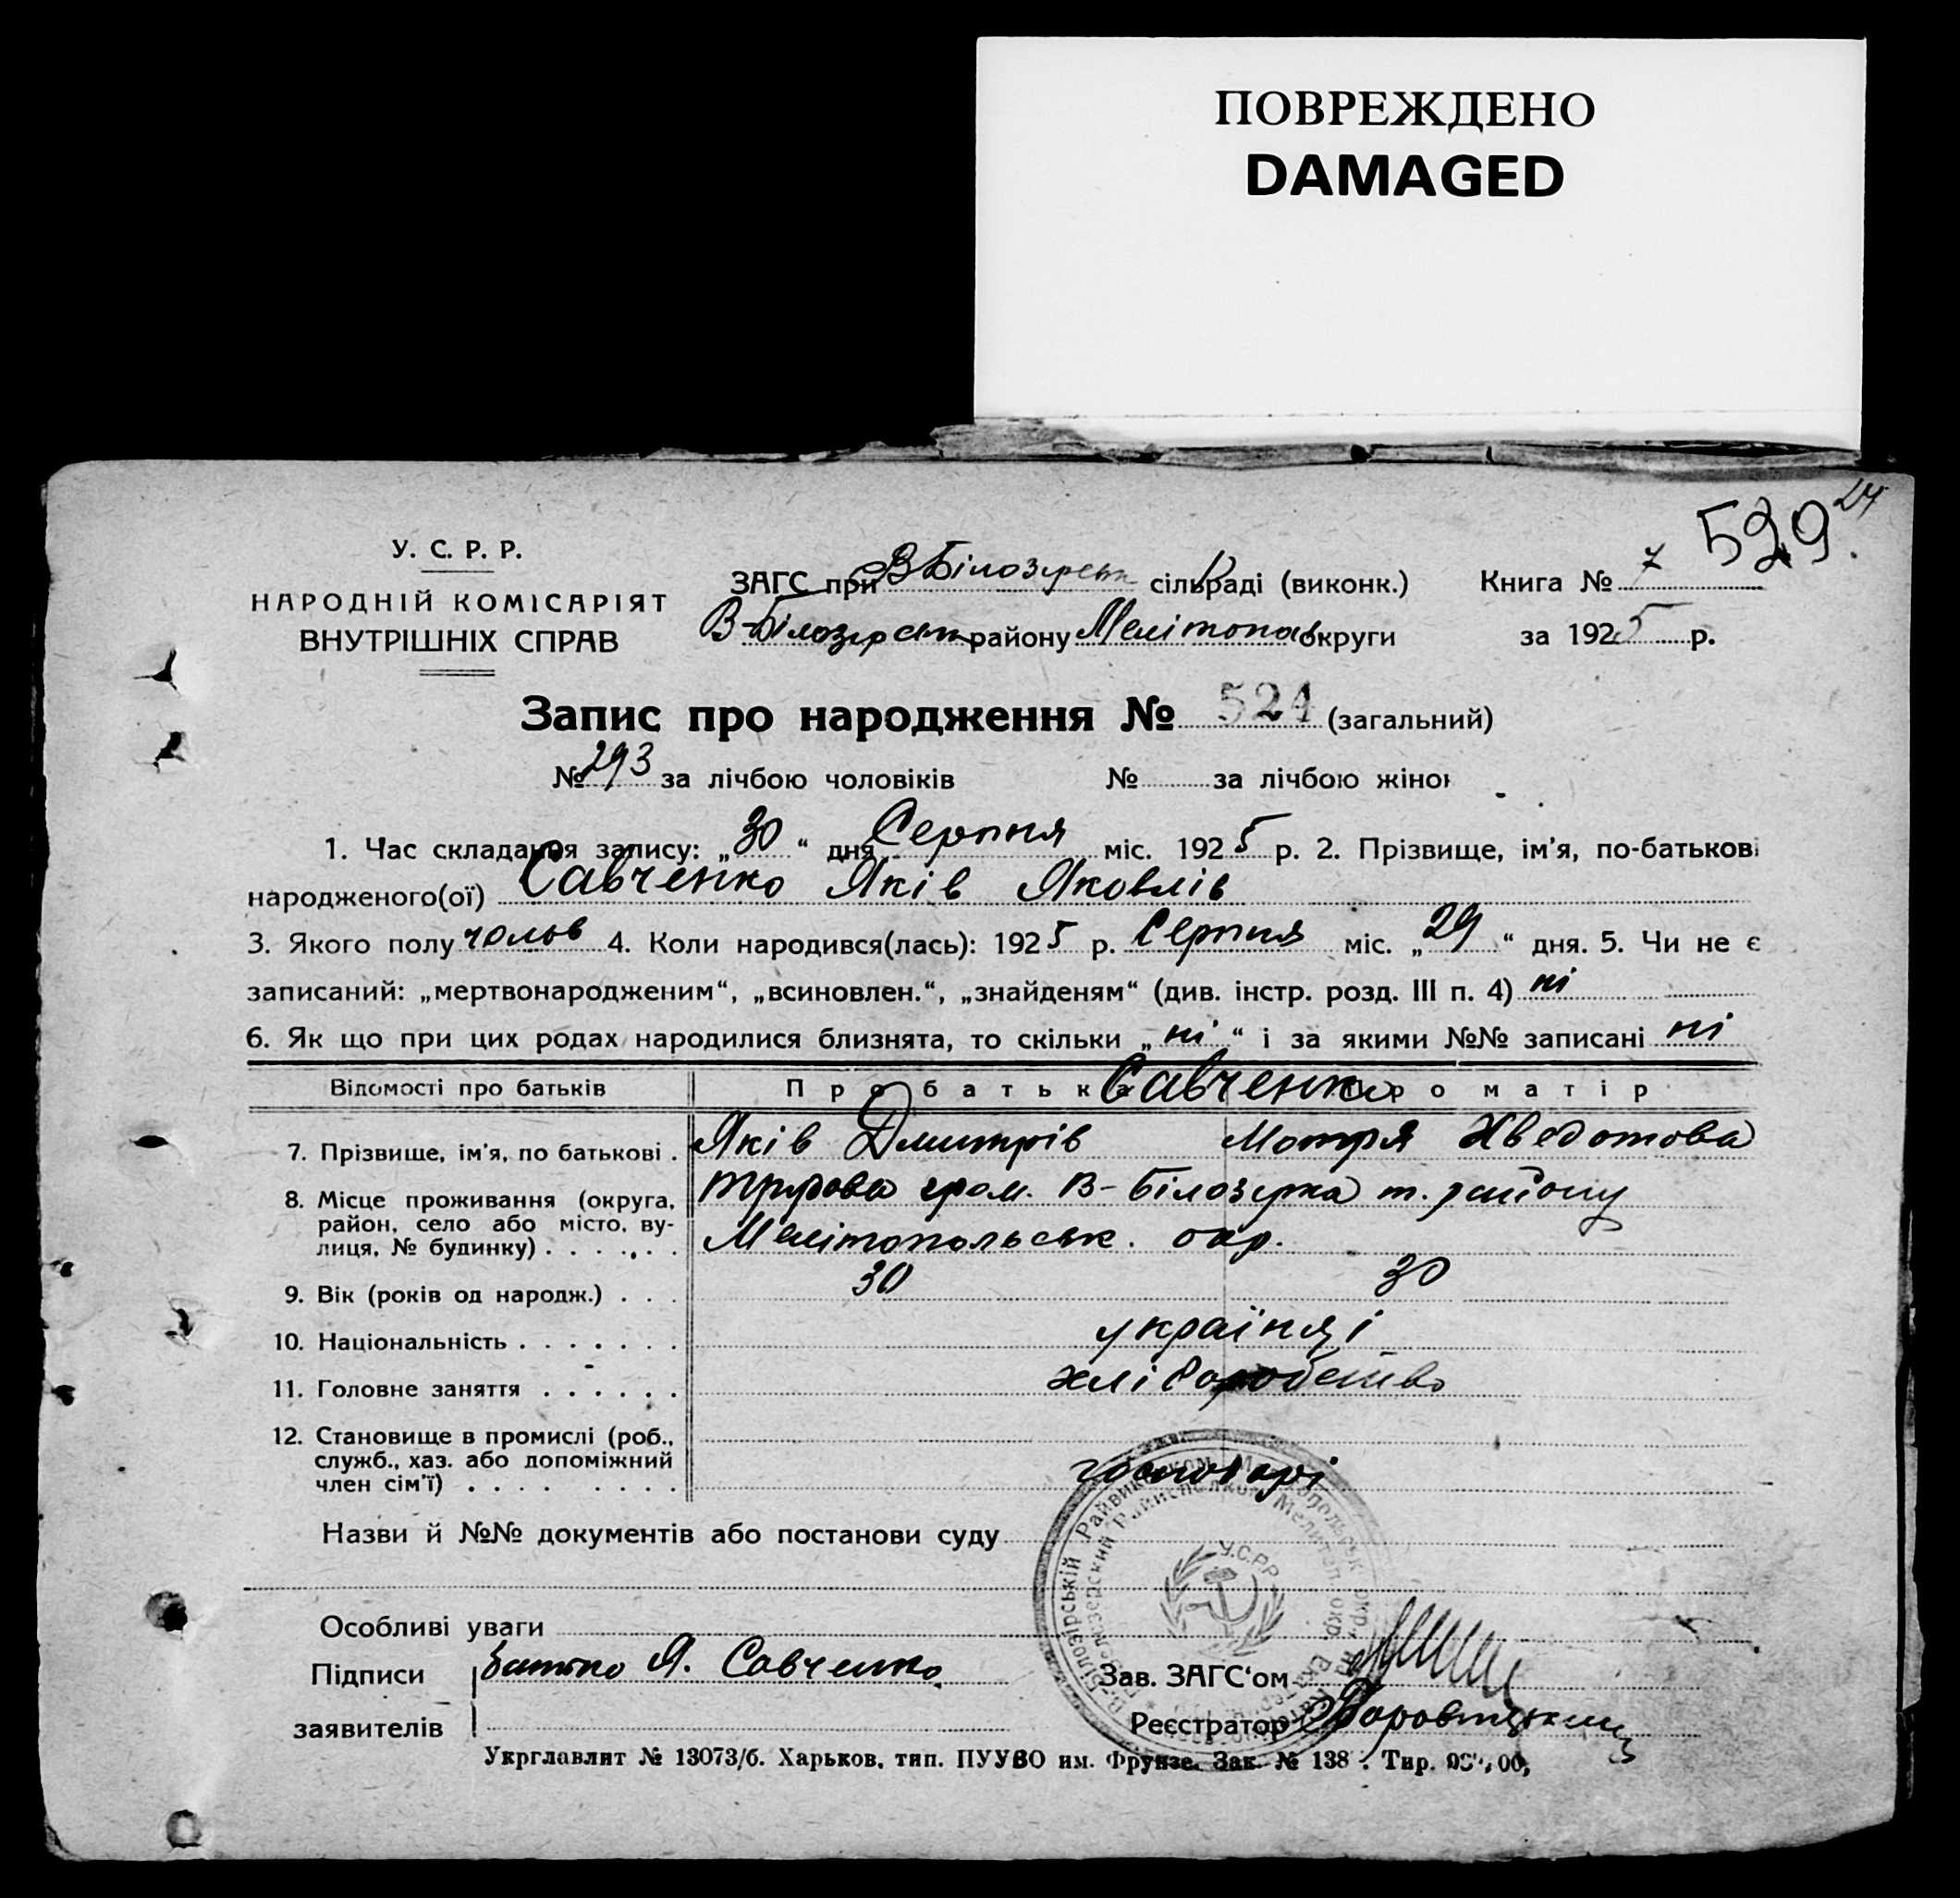 ПОВРЕЖДЕНО
DAMAGED
529
У. С. Р. Р.
НАРОДНІЙ КОМІСАРІЯТ
ВНУТРІШНІХ СПРАВ
ЗАГС при В Білозерськ сільраді (виконк.) Книга № 7
В-Білозерськ району Мелітопол округи за 1925 р.
Запис про народження № 524 (загальний)
№ 293 за лічбою чоловіків № за лічбою жінок
1. Час складання запису: „30“ дня Серпня міс. 1925 р. 2. Прізвище, ім’я, по-батькові
народженого(ої) Савченко Яків Яковлів
3. Якого полу чолов 4. Коли народився(лась): 1925 р. Серпня міс. „29“ дня. 5. Чи не є
записаний: „мертвонародженим“, „всиновлен.“, „знайденям“ (див. інстр. розд. III п. 4) ні
6. Як що при цих родах народилися близнята, то скільки „ні“ і за якими №№ записані ні
Відомості про батьків Про батька Савченко Про матір
7. Прізвище, ім’я, по батькові . Яків Дмитрів Мотря Хведотова
8. Місце проживання (округа, район, село або місто, вулиця, № будинку) . . . . . . гром. В-Білозерка т. району
Мелітопольськ. окр.
9. Вік (років од народж.) . . . 30 30
10. Національність . . . . . . . українці
11. Головне заняття . . . . . . хліборобство
12. Становище в промислі (роб.,
служб., хаз. або допоміжний
член сім’ї) . . . . . . . . господарі
Назви й №№ документів або постанови суду
У.С.Р.Р.
Особливі уваги
Підписи батько Я. Савченко Зав. ЗАГС‘ом
заявителів Реєстратор
Укрглавлит № 13073/б. Харьков, тип. ПУУВО им. Фрунзе. Зак. № 138 . Тир.